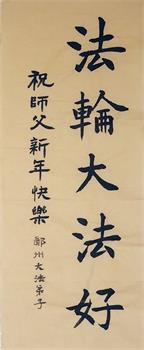 法輪大法好
祝師父新年快樂
鄭州大法弟子